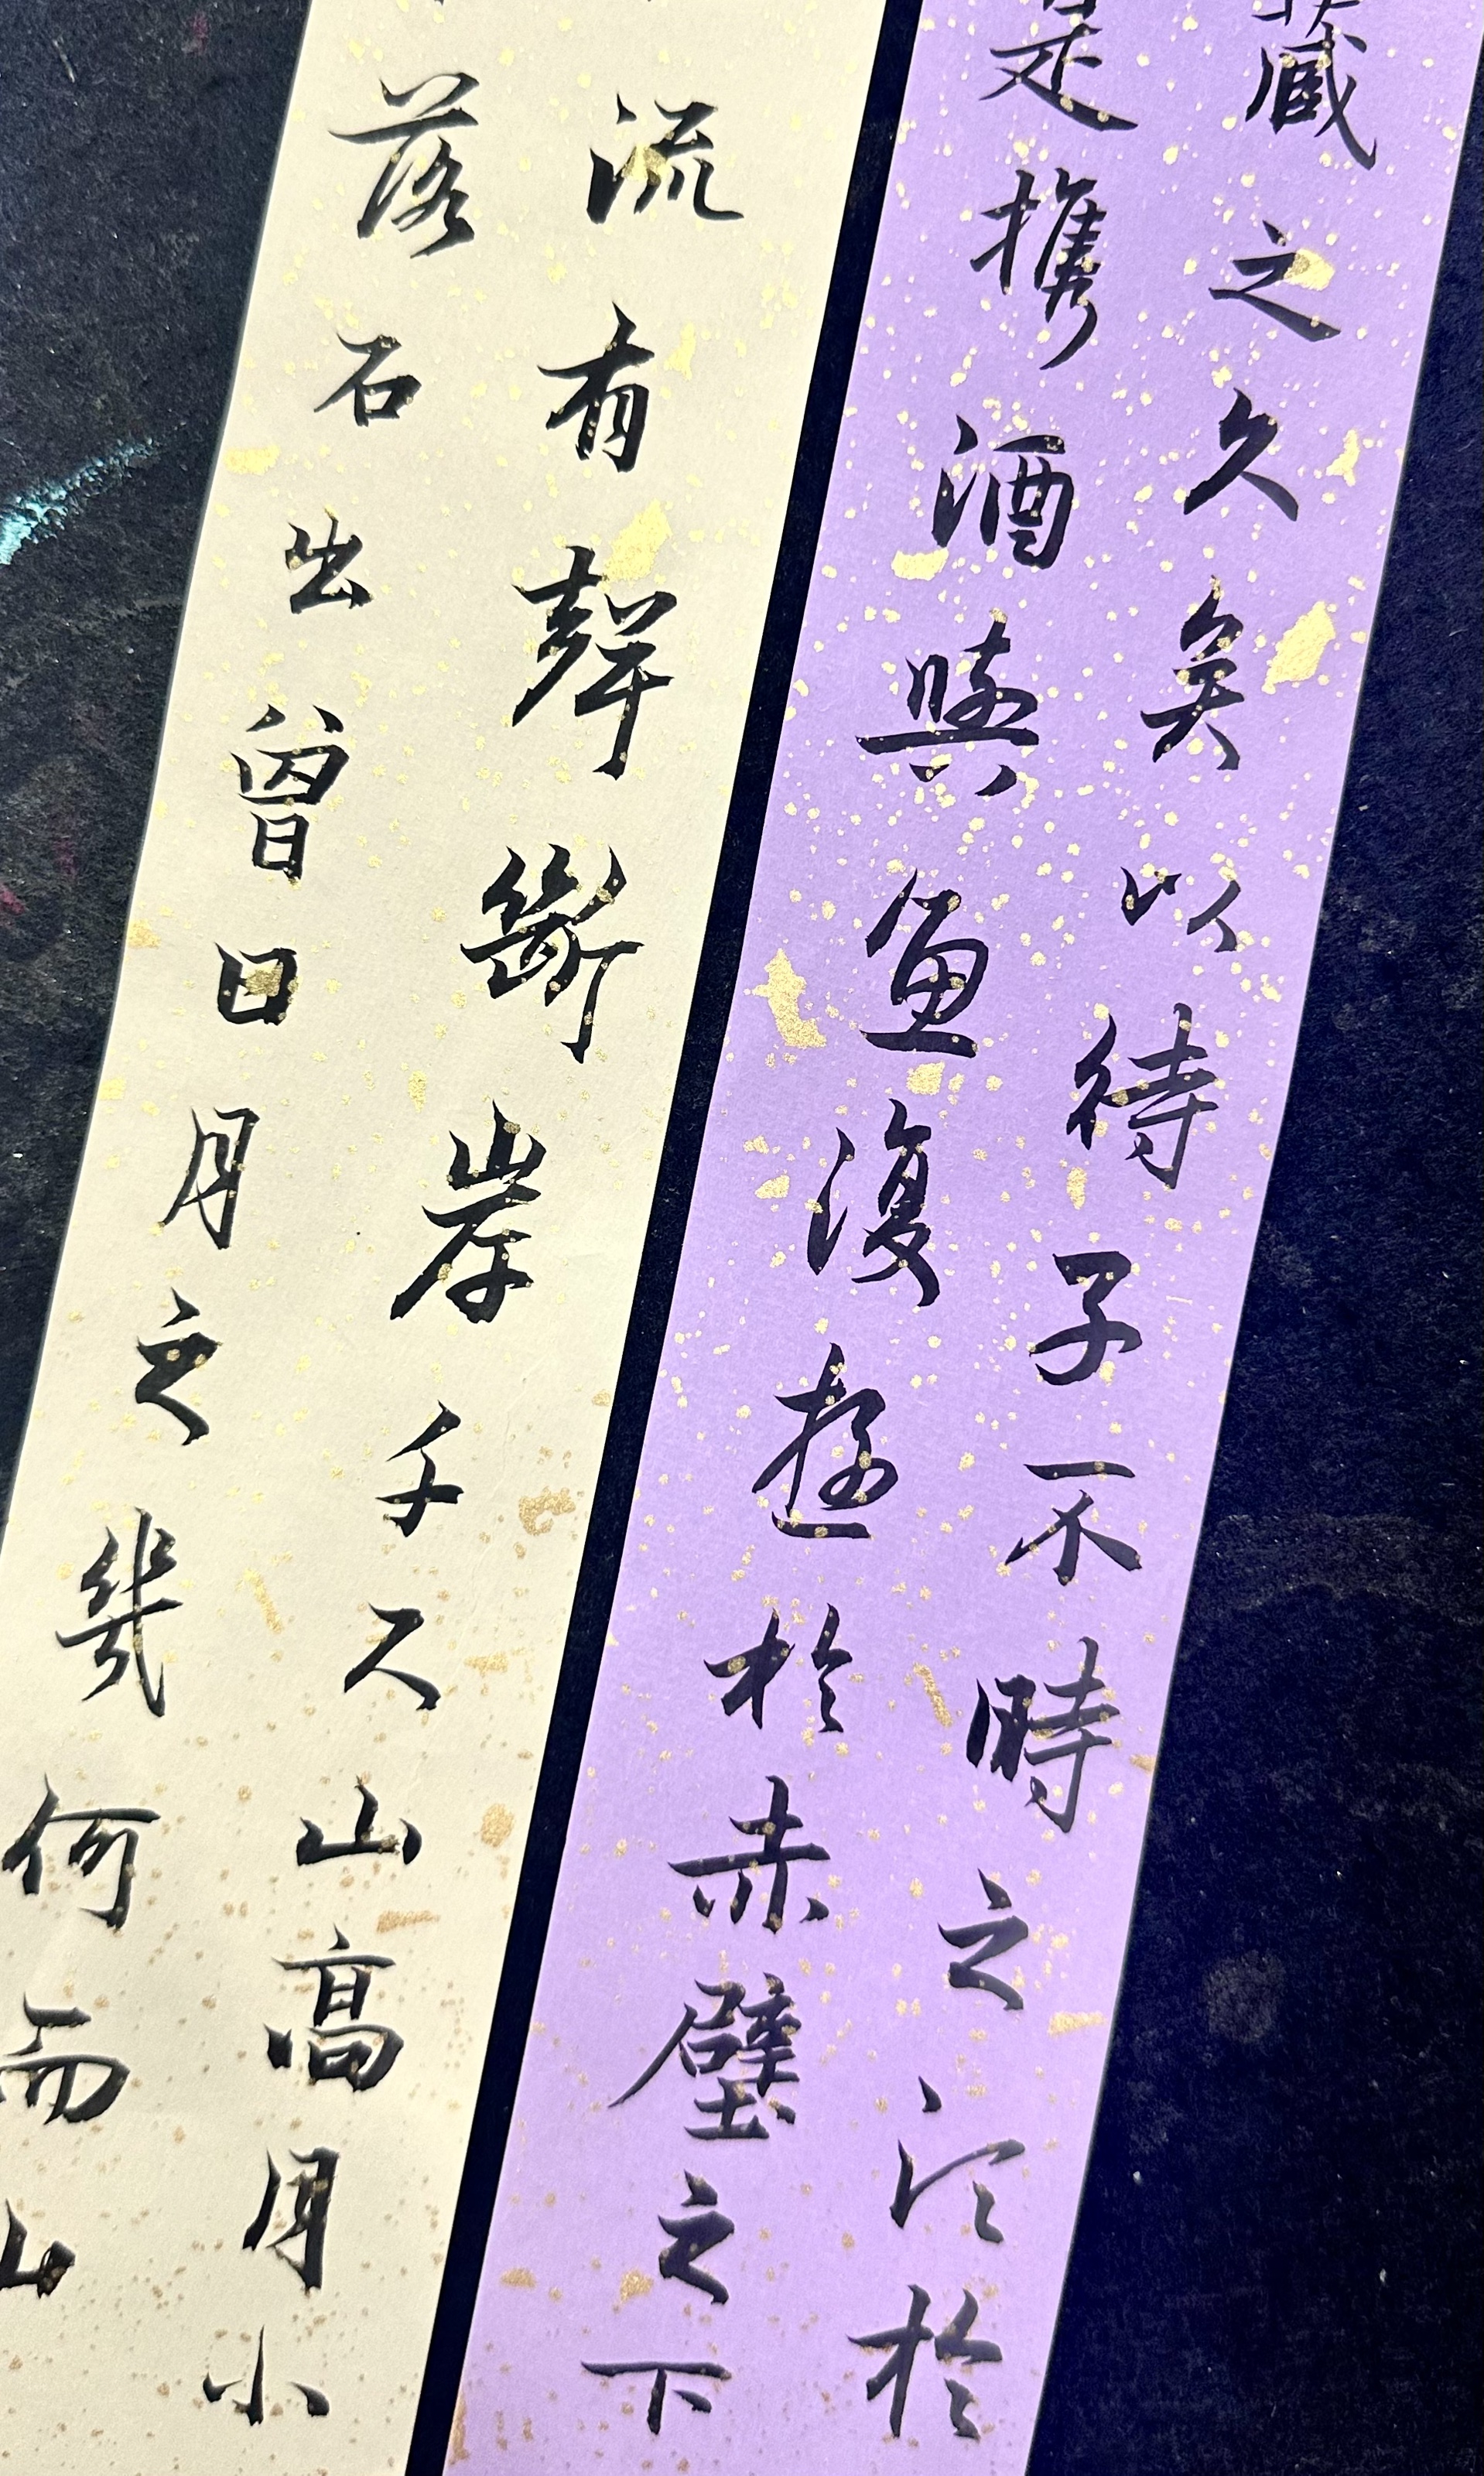 藏之久矣以待子不時之須於
是携酒與魚復遊於赤壁之下
流有聲斷岸千尺山高月小
落石出曾日月之幾何而山